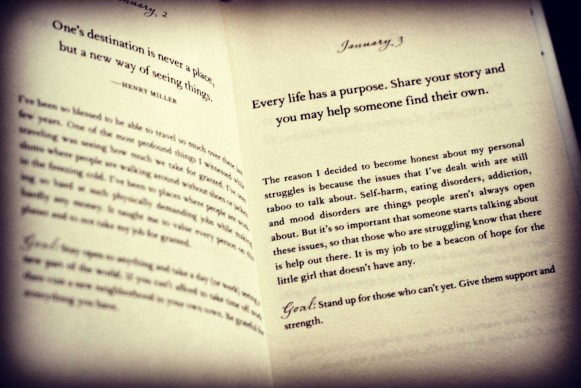 January, 2
One's destination is never a place,
but a new way of seeing things.
—HENRY MILLER
I've been so blessed to be able to travel so much over these
few years. One of the most profound things I witnessed while
traveling was seeing how much we take for granted. I've
slums where people are walking around without shoes or jackets
in the freezing cold. I've been to places where people are
ing so hard at such physically demanding jobs while making
hardly any money. It taught me to value every person on this
planet and to not take my job for granted.
Goal: Stay open to anything and take a day (or week) seeing a
new part of the world. If you can't afford to take time off work,
then visit a new neighborhood in your own town. Be grateful for
everything you have.
January, 3
Every life has a purpose. Share your story and
you may help someone find their own.
The reason I decided to become honest about my personal
struggles is because the issues that I've dealt with are still
taboo to talk about. Self-harm, eating disorders, addiction,
and mood disorders are things people aren't always open
about. But it's so important that someone starts talking about
these issues, so that those who are struggling know that there
is help out there. It is my job to be a beacon of hope for the
little girl that doesn't have any.
Goal: Stand up for those who can't yet. Give them support and
strength.